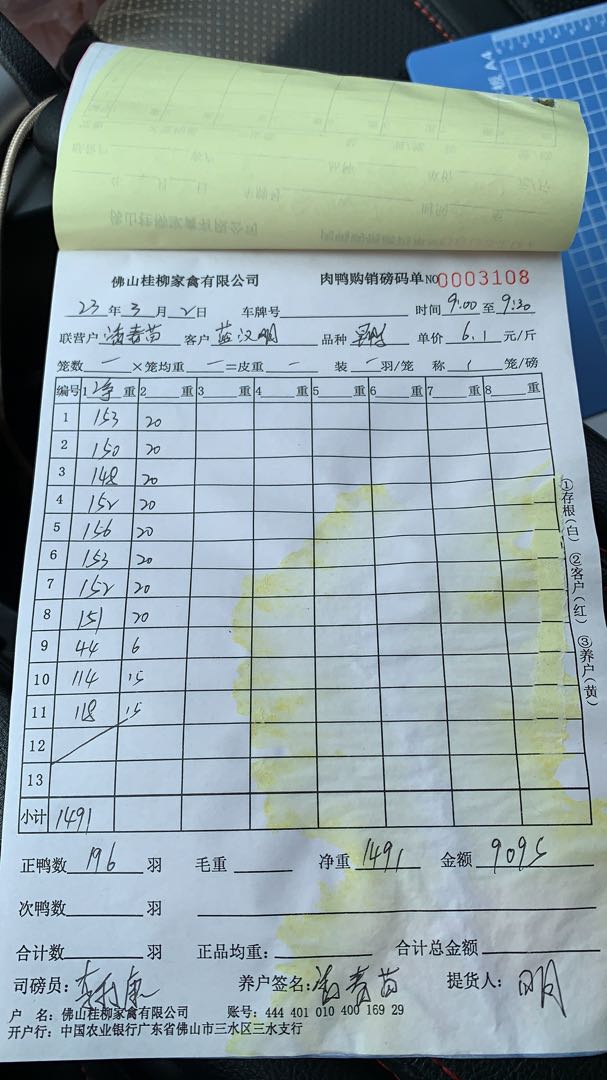 佛山桂柳家禽有限公司 肉鸭购销磅码单NO0003108
23年3月2日 车牌号 时间9:00至9:30
联营户 客户 蓝汉明 品种 单价6.1元/斤
笼数一×笼均重一=皮重一 装一羽/笼 称1笼/磅
编号 1净重 2重 3重 4重 5重 6重 7重 8重
1 153 20
2 150 20
3 148 20
4 152 20
5 156 20
6 153 20
7 152 20
8 151 20
9 44 6
10 114 15
11 118 15
12
13
小计 1491
①存根(白) ②客户(红) ③养户(黄)
正鸭数196羽 毛重 净重1491 金额9095
次鸭数 羽
合计数 羽 正品均重: 合计总金额
司磅员: 养户签名: 青苗 提货人: 明
户 名:佛山桂柳家禽有限公司 账号:444 401 010 400 169 29
开户行:中国农业银行广东省佛山市三水区三水支行